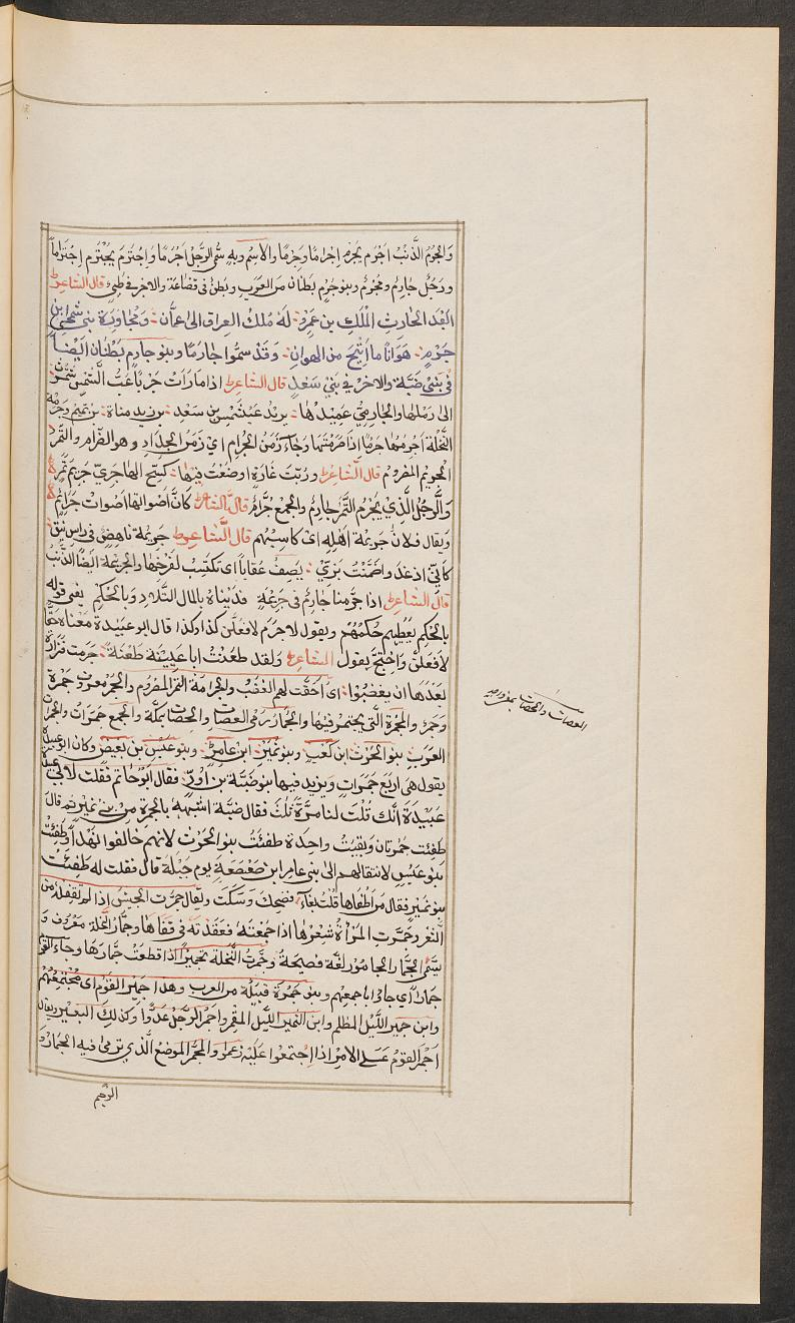 وَالجُرْمُ الذَّنْبُ اَجْرَمَ يُجْرِمُ اِجْرَامًا وَجَرْمًا وَالاِسْم وَبِهِ سُمِّيَ الرَّجُلُ اَجْرَمَا وَاجْتَرَمَ يَجْتَرِم اِجْتِرَامًا
وَرَجُلٌ جَارِم وَمُجْرِم وَبَنُو جَرْم بَطْنَانِ مِنَ العَرَب وبَطْن فى قُضَاعَة والاخر فى طَيّ قال الشاعر
القِد الحَارِثِ المَلِكِ بن عَمْرٍو لَهُ مُلْكُ العِرَاقِ الى عُمَان وَمُجَاوَرَة بَنِي شَمَجَى ابن
جَرْمٍ هَوَانًا ما اُتِيحَ من الهوان وَقَدْ سَمُّوا جَارِمًا وبنو جارم بَطْنَان اَيْضًا
فى بَنِي ضَبَّة والاخر فى بَنِي سَعْد قال الشاعر اذا مَا رَأَت حَرْبًا عَبُ الشَّمْسِ شَمَّرَتْ
الى رَمْلِهَا والجارِمِيّ عَمِيدُهَا يريد عَبْدشَمْس بن سَعْد بن زيد مناة بن تميم وجَرَمَ
النَّخْلَة اَجْرِمُهَا جَرْمًا اِذَا صَرَمْتَهَا وَجَاءَ زَمَنُ الجِرَام اي زَمَن الجِدَاد وهو الصِّرَام والتَّمْر
الجَرِيم المَصْرُوم قال الشَّاعر ورُبَّتَ غَارَةٍ اوضَعْتُ فِيهَا كَسَحّ الهَاجِرِيّ جَرِيمَ تَمْرِ
وَالرَّجُلُ الَّذِي يَجْرِم التَّمْر جَارِم والجمع جُرَّام قال الشاعر كَاَنَّ اَصْوَاتَهَا اَصْوَات جَرَّام
ويقال فُلَانٌ جَرِيمَة اَهْلِهِ اى كَاسِبُهُم قال الشاعر جَرِيمَة نَاهِض فى رَاس نِيق
كَأَنِّي اِذْ غَدَوا ضَمَّنْتُ بَزِّي يَصِفُ عُقَاباً اى تَكْتَسِب لفَرْخِهَا والجَرِيمَة اَيْضًا الذَّنْب
قال الشاعر اذا جَرَّ مِنَّا جَارِم فى جَرِيمَةٍ فَدَيْنَاهُ بِالمَالِ التِّلَادِ وَبِالحُكْمِ يعنى قوله
بِالحُكْمِ يُعْطِيهِم حُكْمُهُمْ ويقول لاجَرَم لاَفْعَلَن كذا وكذا قال ابو عُبَيْدة مَعْنَاهُ حَقًّا
لاَفعَلَنّ وَاحْتَجَّ بقول الشاعر وَلقد طَعَنْتُ اَبَا عُيَيْنَة طَعْنَةً جَرَمَت فَزَارَة
بَعْدَهَا اَن يَغْضَبُوا اى اَحَقَّت لَهُم الغَضَب والجُرَامَة التَّمْر المَصْرُوم والجَمْر معروف جَمْرَة
وَجَمْر وَالمِجْمَرَة الَّتى يجتمر فيها وَالجِمَار رَمْى العَصَاب والحَصَاب بمَكَّة والجمع جَمَرَات وَالجَمَرَات
العَرَب بنو الحُرْث ابن كَعْب وبنو نُمَيْر ابن عامِر وبنو عَبْس بن بَغِيض وكان ابو عبيدة
يقول هى اربَع جَمَرَات ويَزيد فيها بنو ضَبَّة بن اُدّ فقال اَبُو حَاتم فقلت لابى
عُبَيْدَة اِنَّك قُلْتَ لنا مَرَّة ثَلَث فقال ضَبَّة اشبَهه بالجَمْرة من بني نُمَيْر ثم قال
طَفِئت جَمْرتان وَبَقِيَتْ واحِدَة طَفئَتْ بنو الحَرث لانهم خالفوا النَّهْدا وَطَفِئَتْ
بَنو عَبْس لانتقالهم الى بَنِي عامر ابن صَعْصَعَة يوم جَبَلَة قال فقلت له طَفِئَت
بنو نُمَيْر فقال مَن اَطْفَاها قُلْتُ بغاء فَضَحِكَ وَسَكَتَ ويقال جَمَّرْت الجَيْشَ اِذا لم تُقْفِله من
الثغر وجَمَّرَت المَرْأَة شَعْرَهَا اذا جمَعَتْهُ فعَقَدَتْه فى قَفَاهَا وجُمَّار النَّخْلَة مَعْرُوف وَ
يُسَمَّى الجُمَّار الجَامُوْر لُغَة فَصِيحَة وَجَمَّرتُ النَّخْلة تَجْمِيرًا اذا قطَعْتُ جُمَّارَهَا وجاءَ القوم
جمارًا اى جاؤا باجمعهم وبنو جَمْرَة قَبِيلَة من العَرب وهذا جَمِير القَوْم اى مُجْتَمِعُهُم
وابن جَمِير اللَّيْل المظلم وابن الثَمِير اللَّيل المقمِر واَجْمَرَ الرَّجُلُ عَدْوًا وكذلك البَعِير ويقال
اَجْمَر القومُ عَلى الامر اذا اِجْتَمعُوا عَلَيْه زعمو والمُجَمَّر الموضِعُ الَّذي تُرْمى فيه الجِمَار وَ
الرجم
العصاب والحصاب